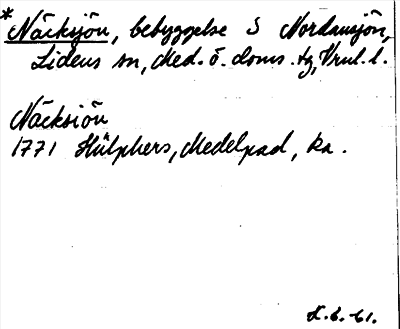 *Näcksjön, bebyggelse S Nordansjön,
Lidens sn, Med. ö. doms. tg, Vrnl. l.
Näcksiön
1771 Hülphers, Medelpad, ka.
X.6.61.